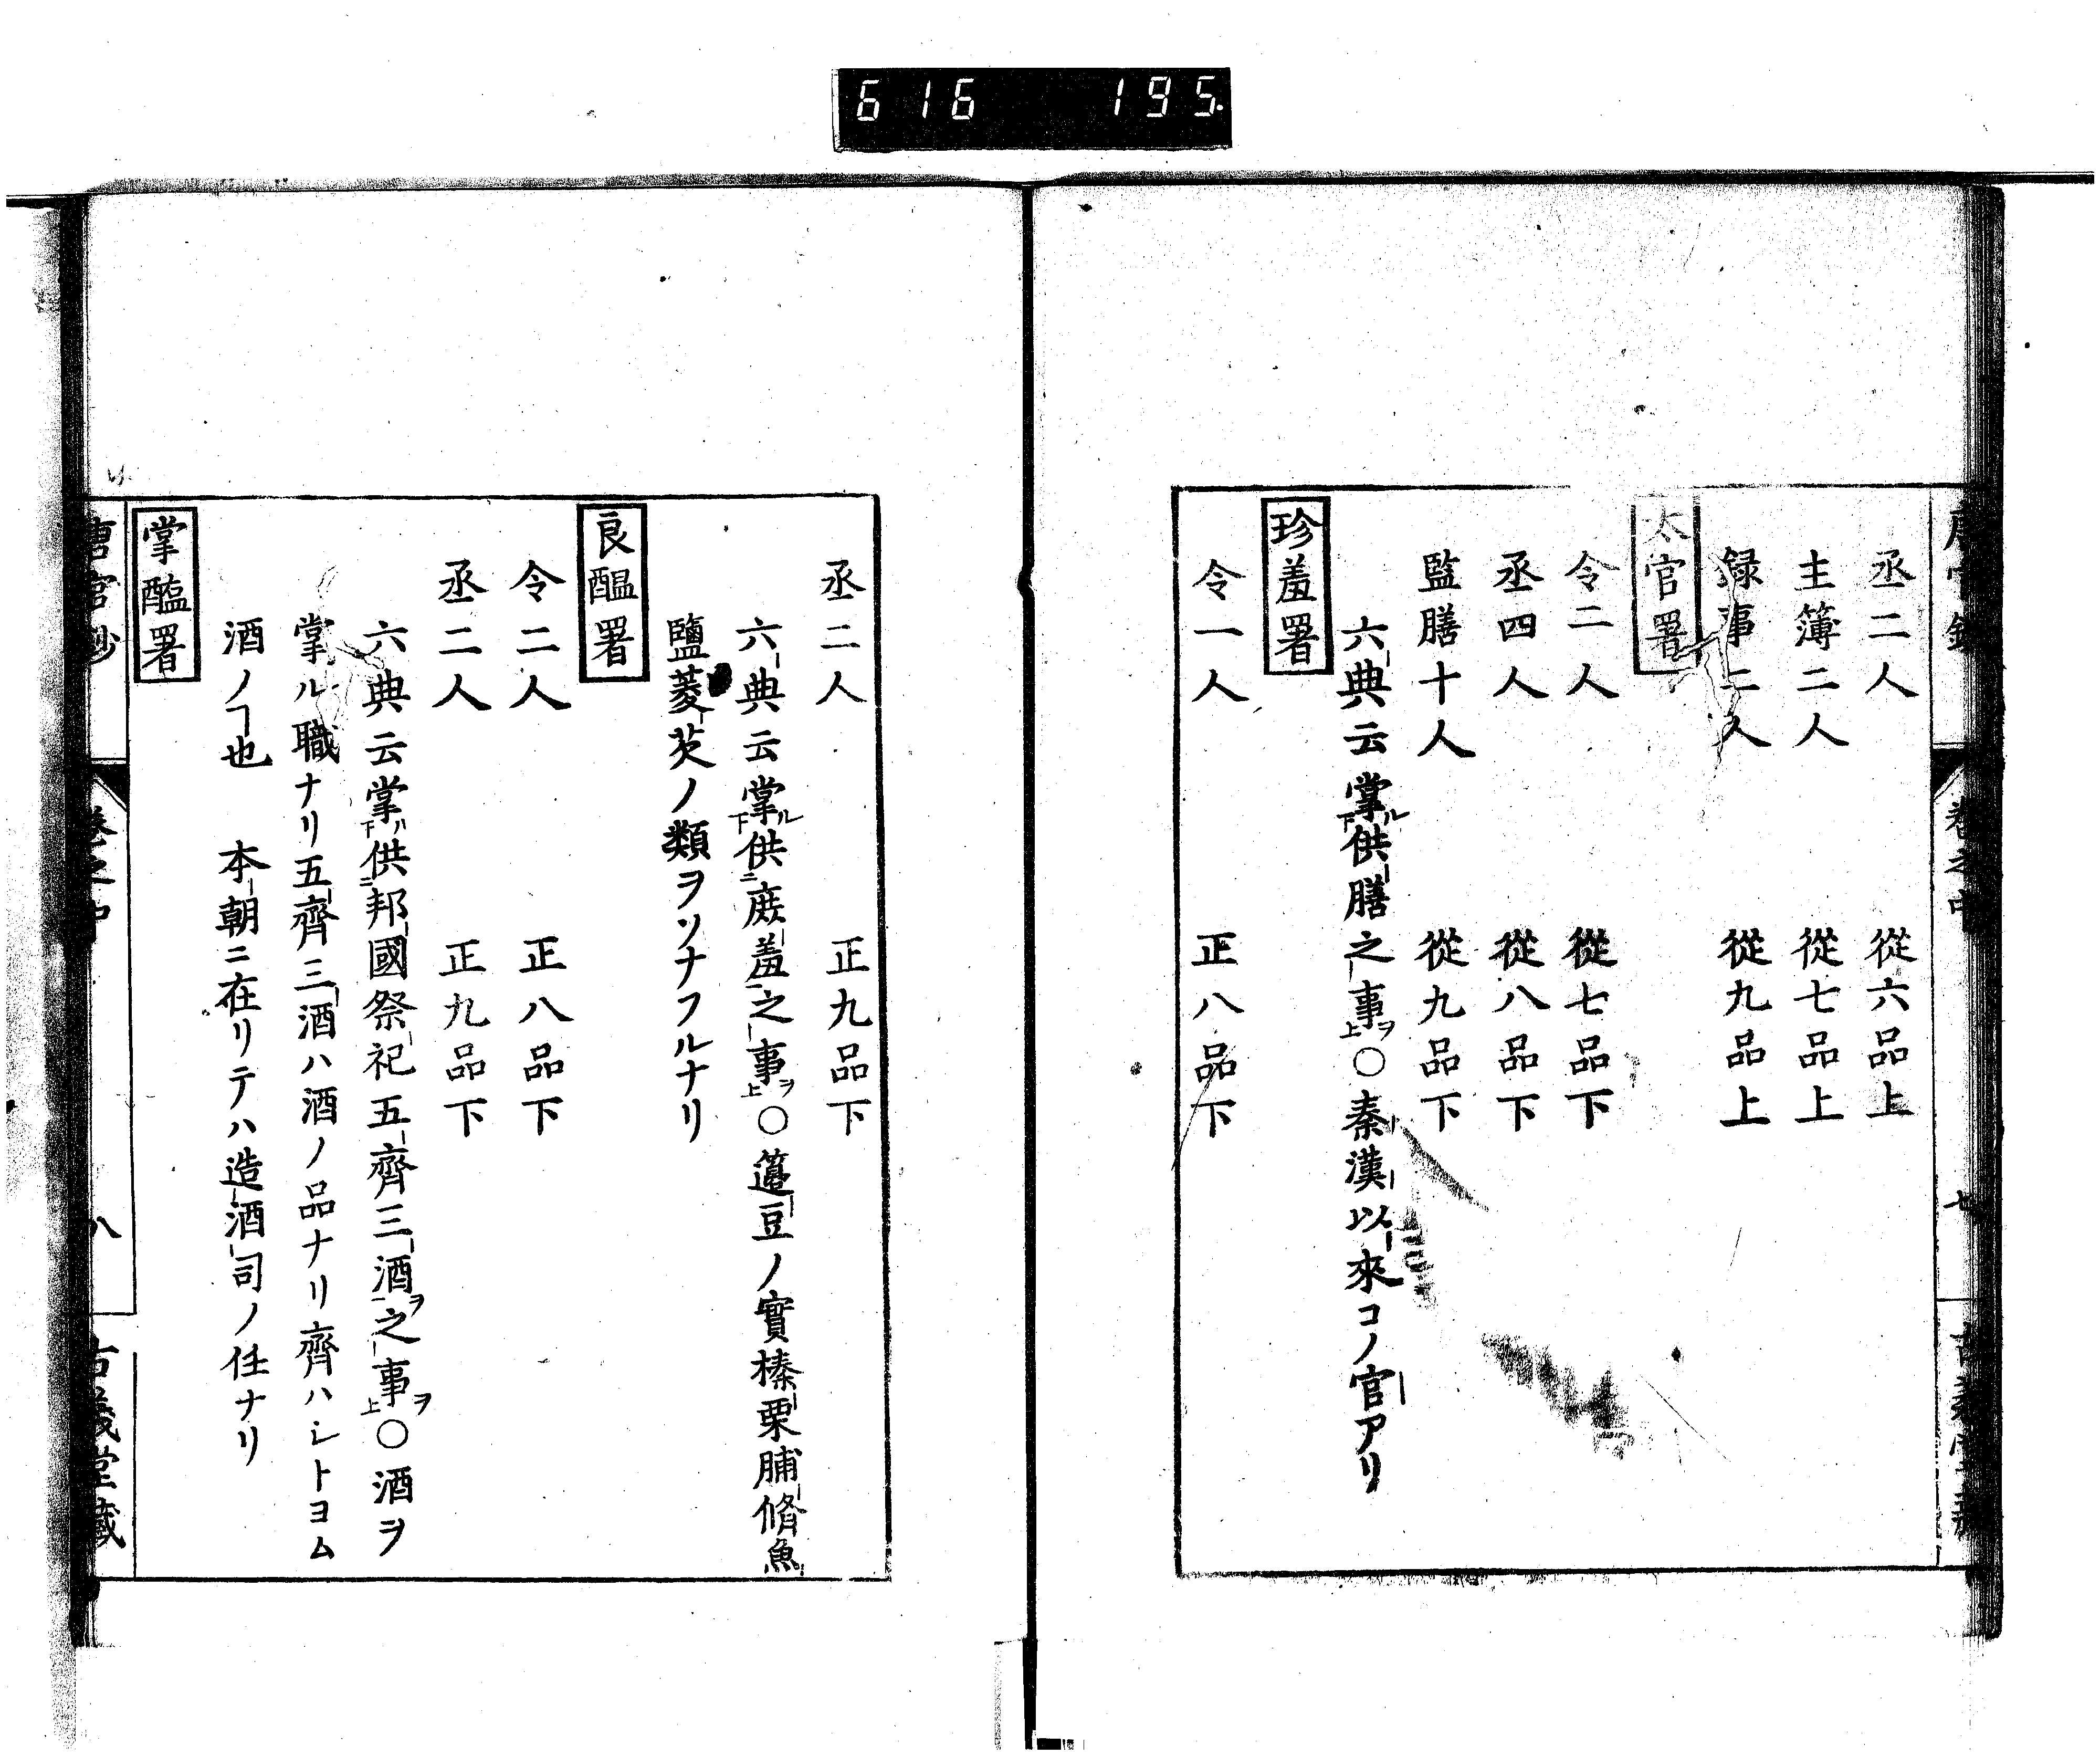 616 195
丞二人 從六品上
主簿二人 從七品上
録事二人 從九品上
太官署
令二人 從七品下
丞四人 從八品下
監膳十人 從九品下
六典云掌ル下供膳之事ヲ上○秦漢以來コノ官アリ
珍羞署
令一人 正八品下
丞二人 正九品下
六典云掌ル下供ニ庶羞一之事ヲ上○籩豆ノ實榛栗脯脩魚
鹽菱芡ノ類ヲソナフルナリ
良醞署
令二人 正八品下
丞二人 正九品下
六典云掌ル下供ニ邦國祭祀五齊三酒ヲ一之事ヲ上○酒ヲ
掌ル職ナリ五齊三酒ハ酒ノ品ナリ齊ハシトヨム
酒ノヿ也 本朝ニ在リテハ造酒司ノ任ナリ
掌醢署
唐官鈔 卷之中 八 古義堂藏